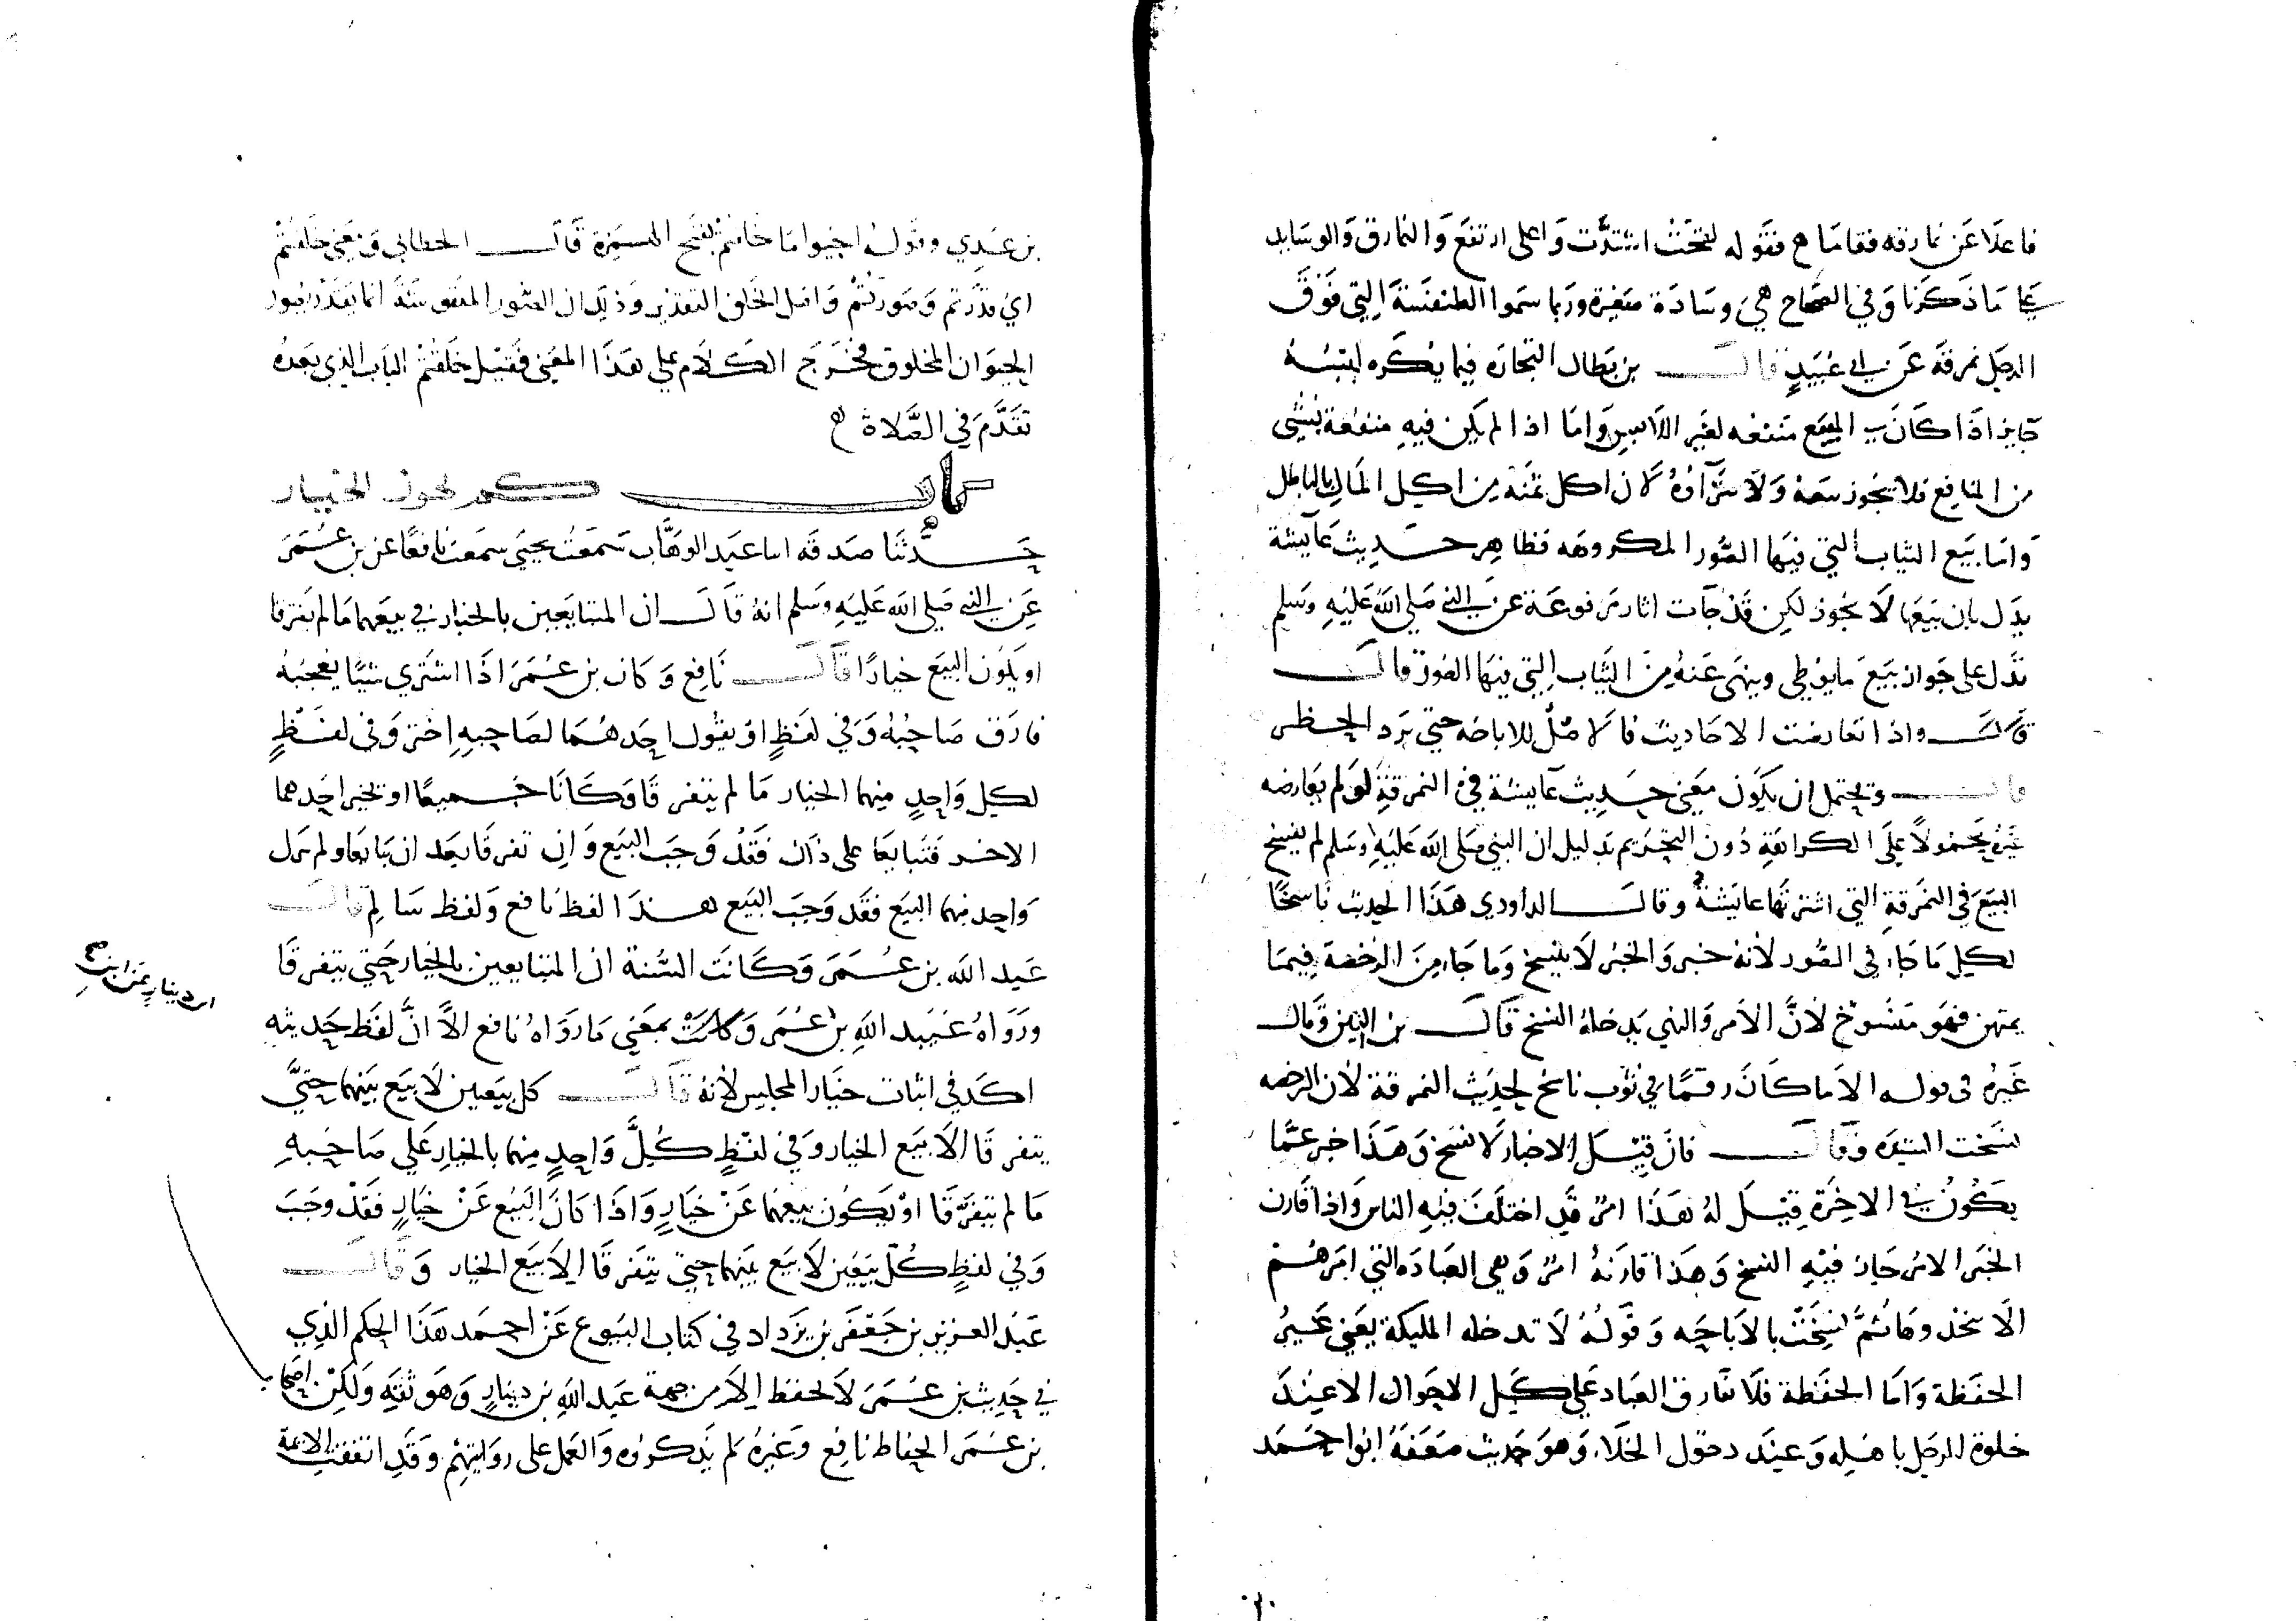 فاعلا عن نمارقه فقاما ح فقوله لتختت اشتدت واعلى ارتفع والنمارق والوسايد
كما ما ذكرنا وفي الصحاح هي وسادة صغيرة وربما سموا الطنفسة التي فوق
الرجل نمرقة عن ابي عبيد قال بن بطال التجارة فيما يكره لبسه
جايز اذا كان في المبيع منفعه لغير اللابس واما اذا لم يكن فيه منفعة لشي
من المنافع فلا يجوز بيعه ولا شراؤه لان اكل ثمنه من اكل المال بالباطل
واما بيع الثياب التي فيها الصور المكروهه فظاهر حديث عآيشة
يدل بان بيعها لا يجوز لكن قد جآت اثار مرفوعة عن النبي صلى الله عليه وسلم
تدل على جواز بيع ما يوطي وينهى عنه من الثياب التي فيها الصور قال
قال واذا تعارضت الاحاديث فالاصل للاباحه حتى يرد الحظر
قال ويحتمل ان يكون معنى حديث عآيشة في النمرقة لو لم يعارضه
غيره محمولا على الكراهة دون التحريم بدليل ان النبي صلى الله عليه وسلم لم يفسخ
البيع في النمرقة التي اشترتها عايشة وقال الداودي هذا الحديث ناسخا
لكل ما جاء في الصور لانه خبر والخبر لا ينسخ وما جاء من الرخصة فيما
يمتهن فهو منسوخ لان الامر والنهي يدخله النسخ قال بن التين وقال
غيره في قوله الا ما كان رقما في ثوب ناسخ لحديث النمرقة لان الرخصه
نسخت الشده وقال فان قيل الاخبار لا تنسخ وهذا خبر عما
يكون في الاخرة قيل له هذا امر قد اختلف فيه الناس واذا قارن
الخبر الامر جاز فيه النسخ وهذا قارنه امر وهي العبادة التي امرهم
الا يتخذوها ثم نسخت بالاباحه وقوله لا تدخله المليكة يعني غير
الحفظة واما الحفظة فلا تفارق العباد على كل الاحوال الا عند
خلوة الرجل باهله وعند دخول الخلاء وهو حديث ضعفه ابو احمد
بن عدي وقوله احيوا ما خلقتم بفتح الهمزة قال الخطابي ومعنى خلقتم
اي قدرتم وصورتم واصل الخلق التقدير وذلك ان الصور المنقوشة انما يقدر بصور
الحيوان المخلوق فخرج الكلام على هذا المعنى فقيل خلقتم الباب الذي بعده
تقدم في الصلاة ح
باب كم يجوز الخيار
حدثنا صدقه انبا عبد الوهاب سمعت يحيى سمعت نافعا عن بن عمر
عن النبي صلى الله عليه وسلم انه قال ان المتبايعين بالخيار في بيعهما ما لم يتفرقا
او يكون البيع خيارا قال نافع وكان بن عمر اذا اشترى شيا يعجبه
فارق صاحبه وفي لفظ او يقول احدهما لصاحبه اختر وفي لفظ
لكل واحد منهما الخيار ما لم يتفرقا وكانا جميعا او يخير احدهما
الاخر فتبايعا على ذلك فقد وجب البيع وان تفرقا بعد ان تبايعا ولم يترك
واحد منهما البيع فقد وجب البيع هذا لفظ نافع ولفظ سالم قال
عبد الله بن عمر وكانت السنة ان المتبايعين بالخيار حتى يتفرقا
ورواه عبيد الله بن عمر وكانت بمعنى ما رواه نافع الا ان لفظ حديثه
اكد في اثبات خيار المجلس لانه قال كل بيعين لا بيع بينهما حتى
يتفرقا الا بيع الخيار وفي لفظ كل واحد منهما بالخيار على صاحبه
ما لم يتفرقا او يكون بيعهما عن خيار واذا كان البيع عن خيار فقد وجب
وفي لفظ كل بيعين لا بيع بينهما حتى يتفرقا الا بيع الخيار وقال
عبد العزيز بن جعفر بن يزداد في كتاب البيوع عن احمد هذا الحكم الذي
في حديث بن عمر لا يحفظ الا من جهة عبد الله بن دينار وهو ثقه ولكن اصحاب
بن عمر الحفاظ نافع وغيره لم يذكروه والعمل على روايتهم وقد اتفقت الائمة
ابن دينار عن ابن